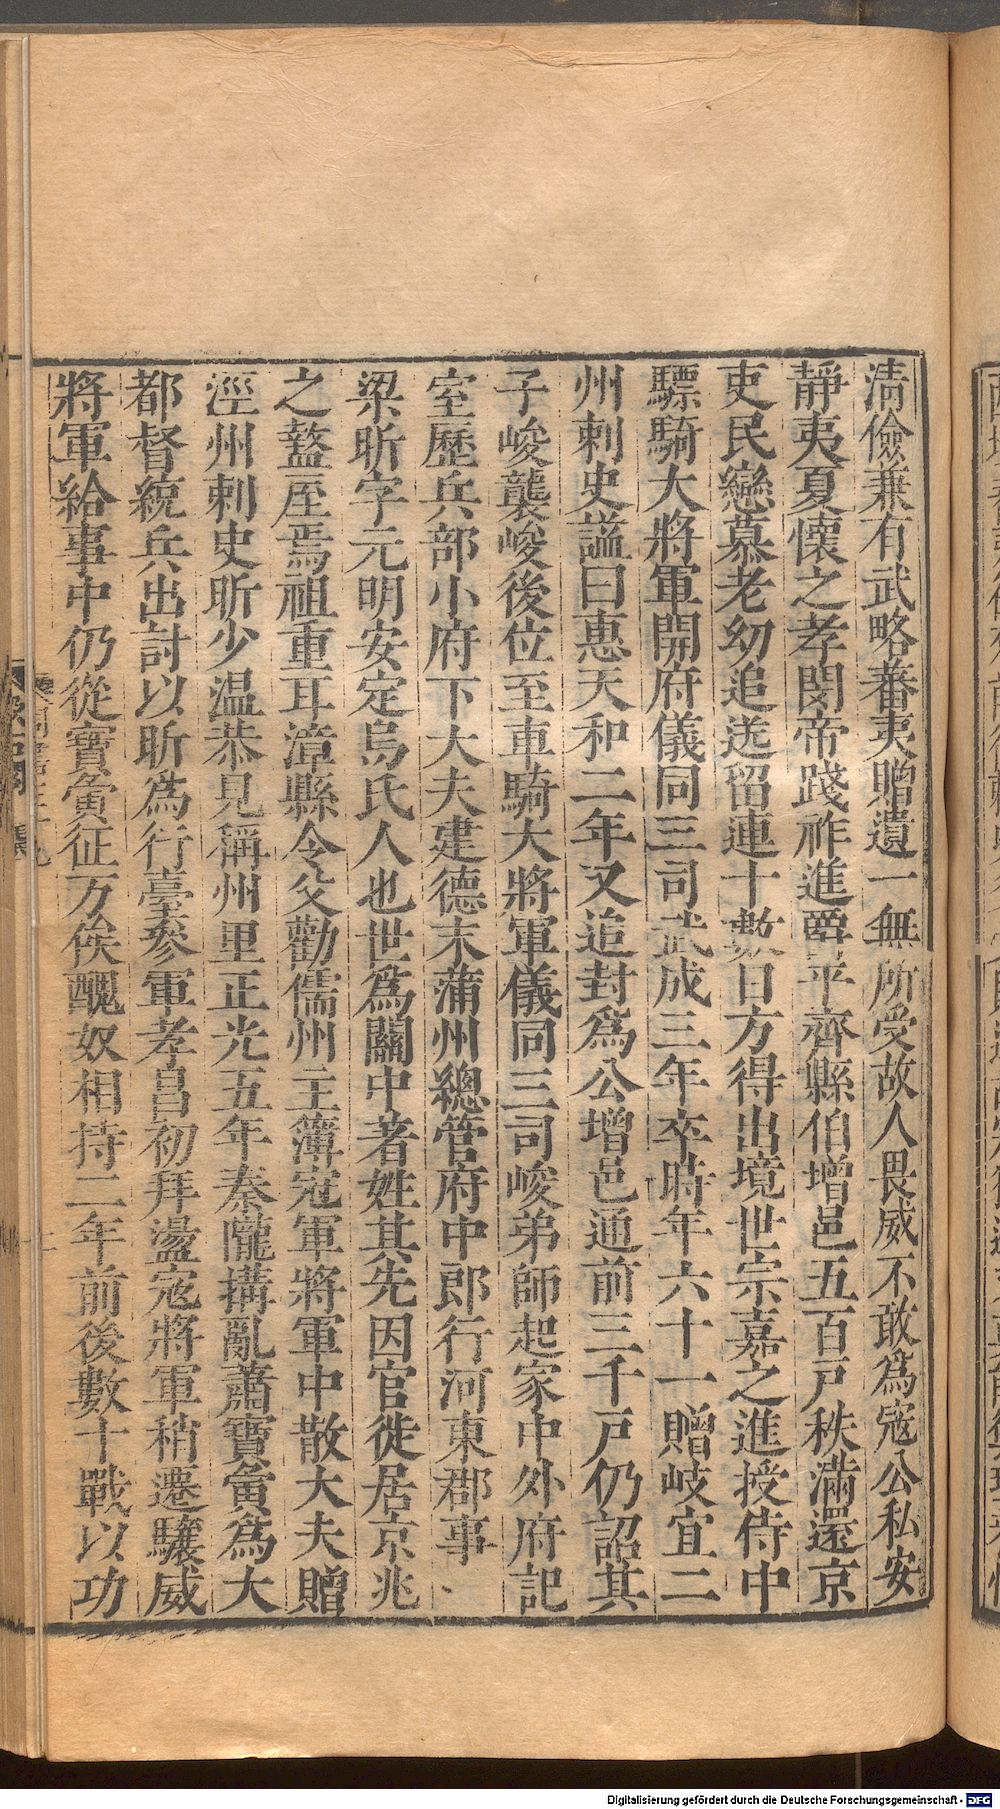 清儉兼有武略蕃夷贈遺一無所受故人畏威不敢爲寇公私安
靜夷夏懷之孝閔帝踐祚進爵平齊縣伯增邑五百戶秩滿還京
吏民戀慕老幼追送留連十數日方得出境世宗嘉之進授侍中
驃騎大將軍開府儀同三司武成三年卒時年六十一贈岐宜二
州刺史謚曰惠天和二年又追封爲公增邑通前三千戶仍詔其
子峻襲峻後位至車騎大將軍儀同三司峻弟師起家中外府記
室歷兵部小府下大夫建德末蒲州總管府中郎行河東郡事
梁昕字元明安定烏氏人也世爲關中著姓其先因官徙居京兆
之盩厔焉祖重耳漳縣令父勸儒州主簿冠軍將軍中散大夫贈
涇州刺史昕少温恭見稱州里正光五年秦隴搆亂蕭寶夤爲大
都督統兵出討以昕爲行臺參軍孝昌初拜盪寇將軍稍遷驤威
將軍給事中仍從寶夤征万俟醜奴相持二年前後數十戰以功
Digitalisierung gefördert durch die Deutsche Forschungsgemeinschaft - DFG